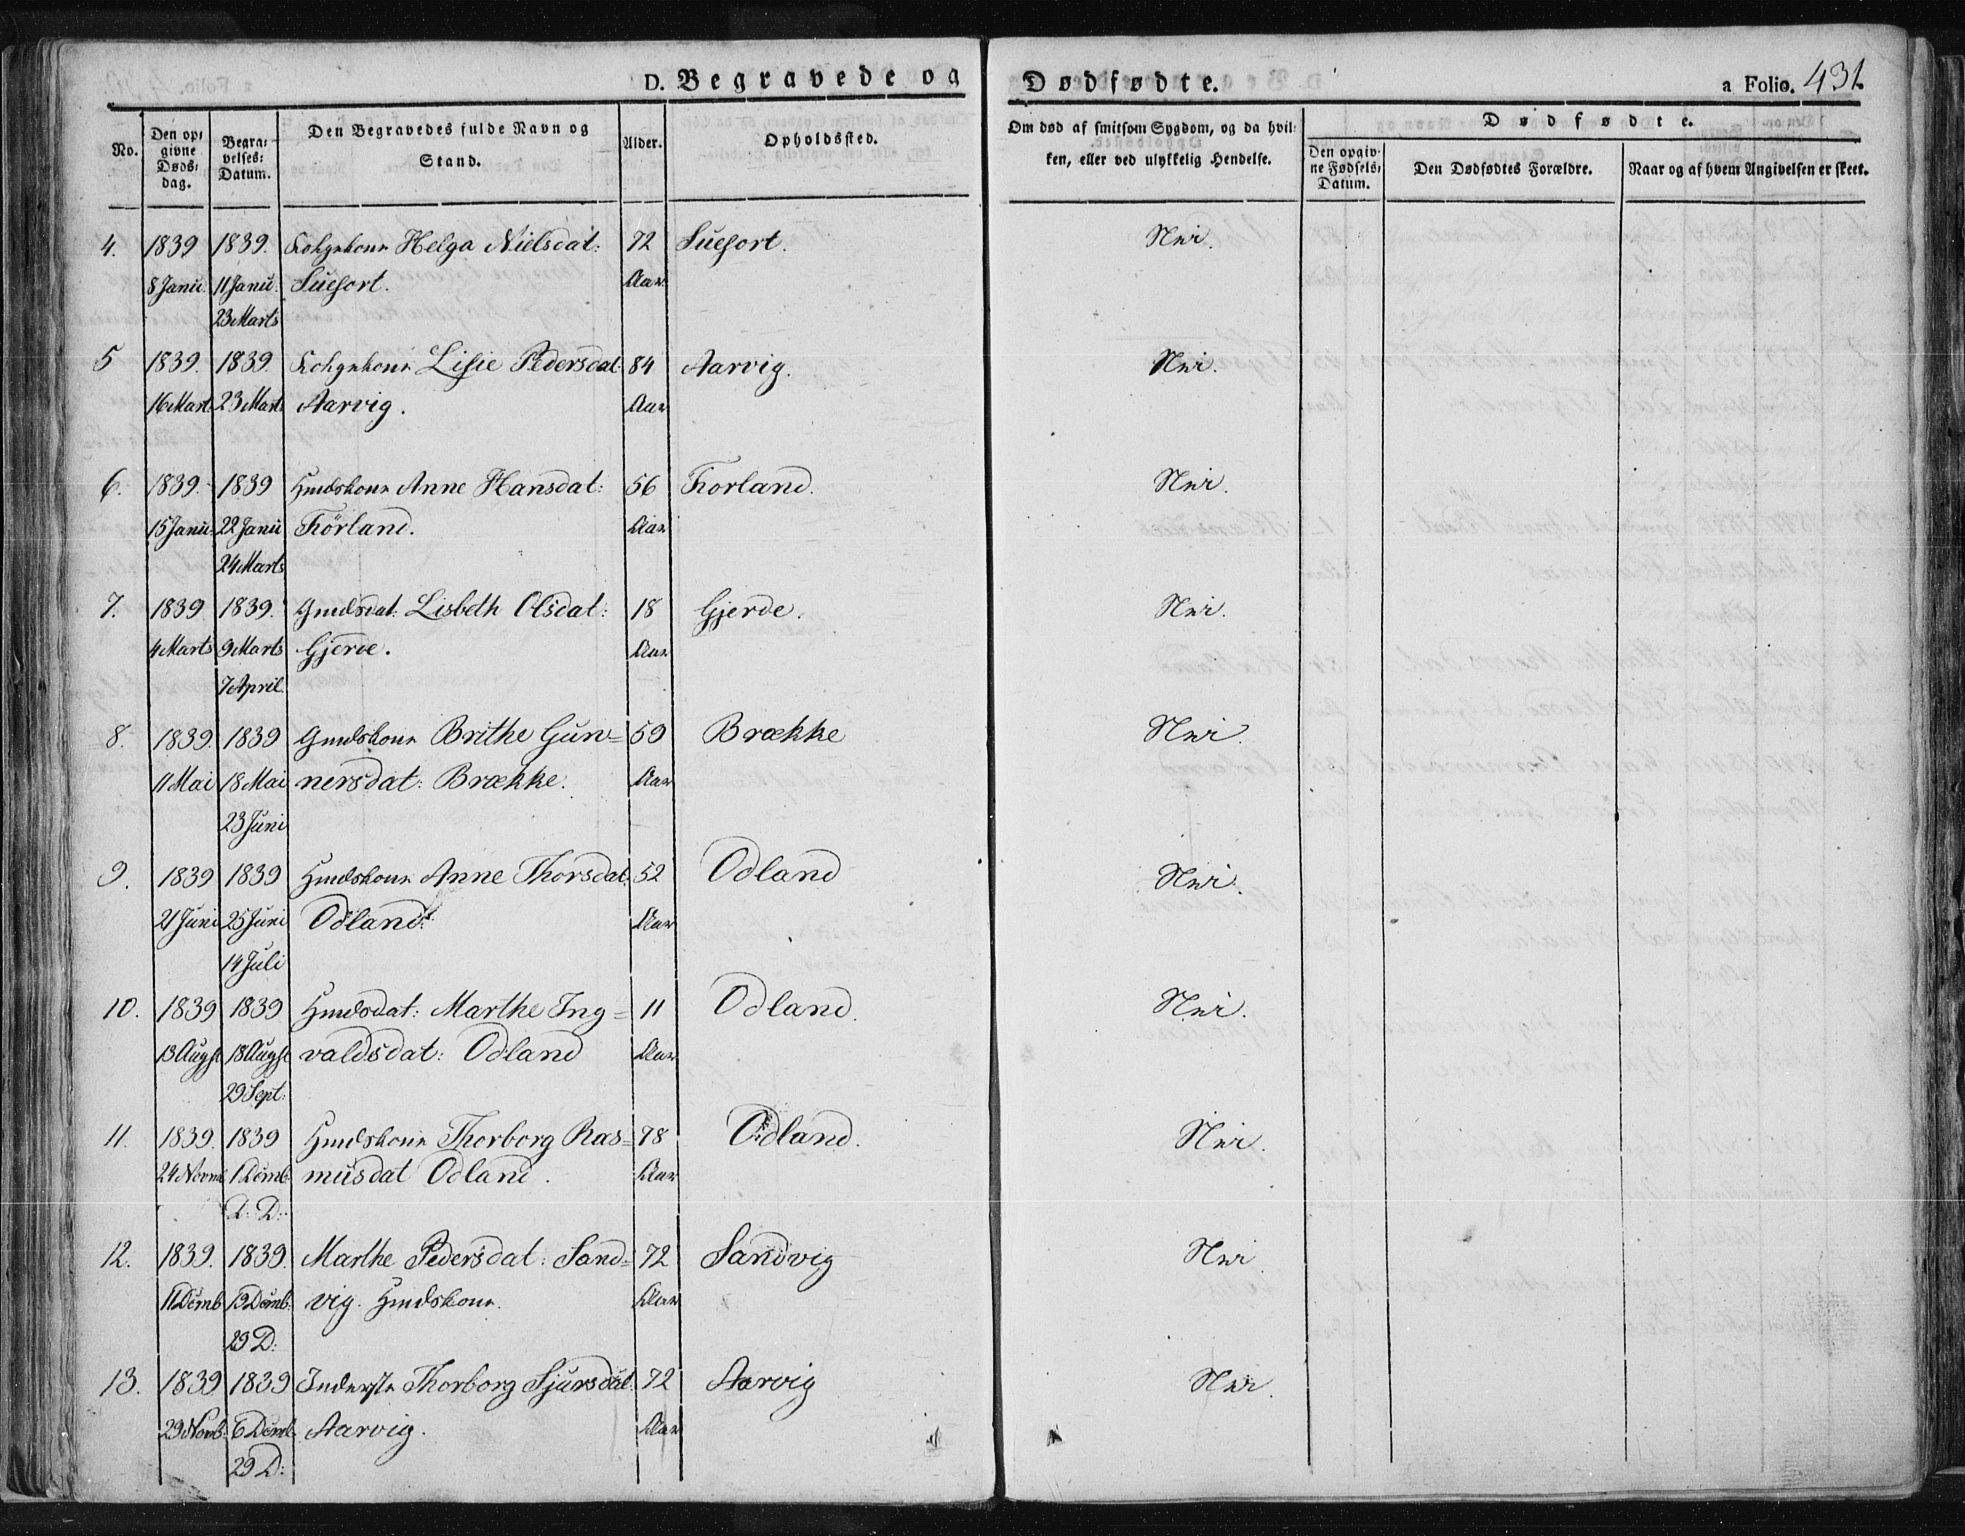 D. Begravede og Dødfødte. a Folio. 431.
No. Den opgivne Dødsdag. Begravelses-Datum. Den Begravedes fulde Navn og Stand. Alder. Opholdssted. Om død af smitsom Sygdom, og da hvilken, eller ved ulykkelig Hendelse. Dødfødte.
Den opgivne Fødsels-Datum. Den Dødfødtes Forældre. Naar og af hvem Angivelsen er skeet.
4. 1839 1839. Helga Nielsdat: 72 Suesort. Nei.
8 Janu: 11 Janu: Suesort. Aar
23 Marts
5 1839. 1839. Lisie Pedersdat: 84 Aarvig. Nei.
16 Mart 23 Mart Aarvig. Aar
6. 1839. 1839 Anne Hansdat: 56 Torland. Nei.
15 Janu: 22 Janu Tørland. Aar
24 Marts
7. 1839 1839. Lisbeth Olsdat: 18 Gjerde. Nei.
4 Marts 9 Marts Gjerde. Aar
7 April
8. 1839. 1839 Brithe Gun= 59 Brække Nei.
11 Mai 18 Mai nersdat: Brække. Aar
23 Juni
9. 1839 1839 Anne Thorsdat: 52 Odland Nei.
21 Juni 25 Juni Odland: Aar
14 Juli
10. 1839 1839 Marthe Ing= 11 Odland. Nei.
13 Augst 18 Augst valdsdat: Odland Aar
29 Sept:
11. 1839. 1839 Thorborg Ras= 78 Odland. Nei.
24 Novmb 1 Decmb musdat Odland. Aar
D:
12. 1839. 1839. Marthe Pedersdat: Sand= 72 Sandvig Nei
11 Decmb Decmb: vig. Aar
29 D:
13. 1839 1839 Inderste Thorborg Sjursdat: 72 Aarvig Nei.
29 Novb. 6 Decmb. Aarvig. Aar
29 D: